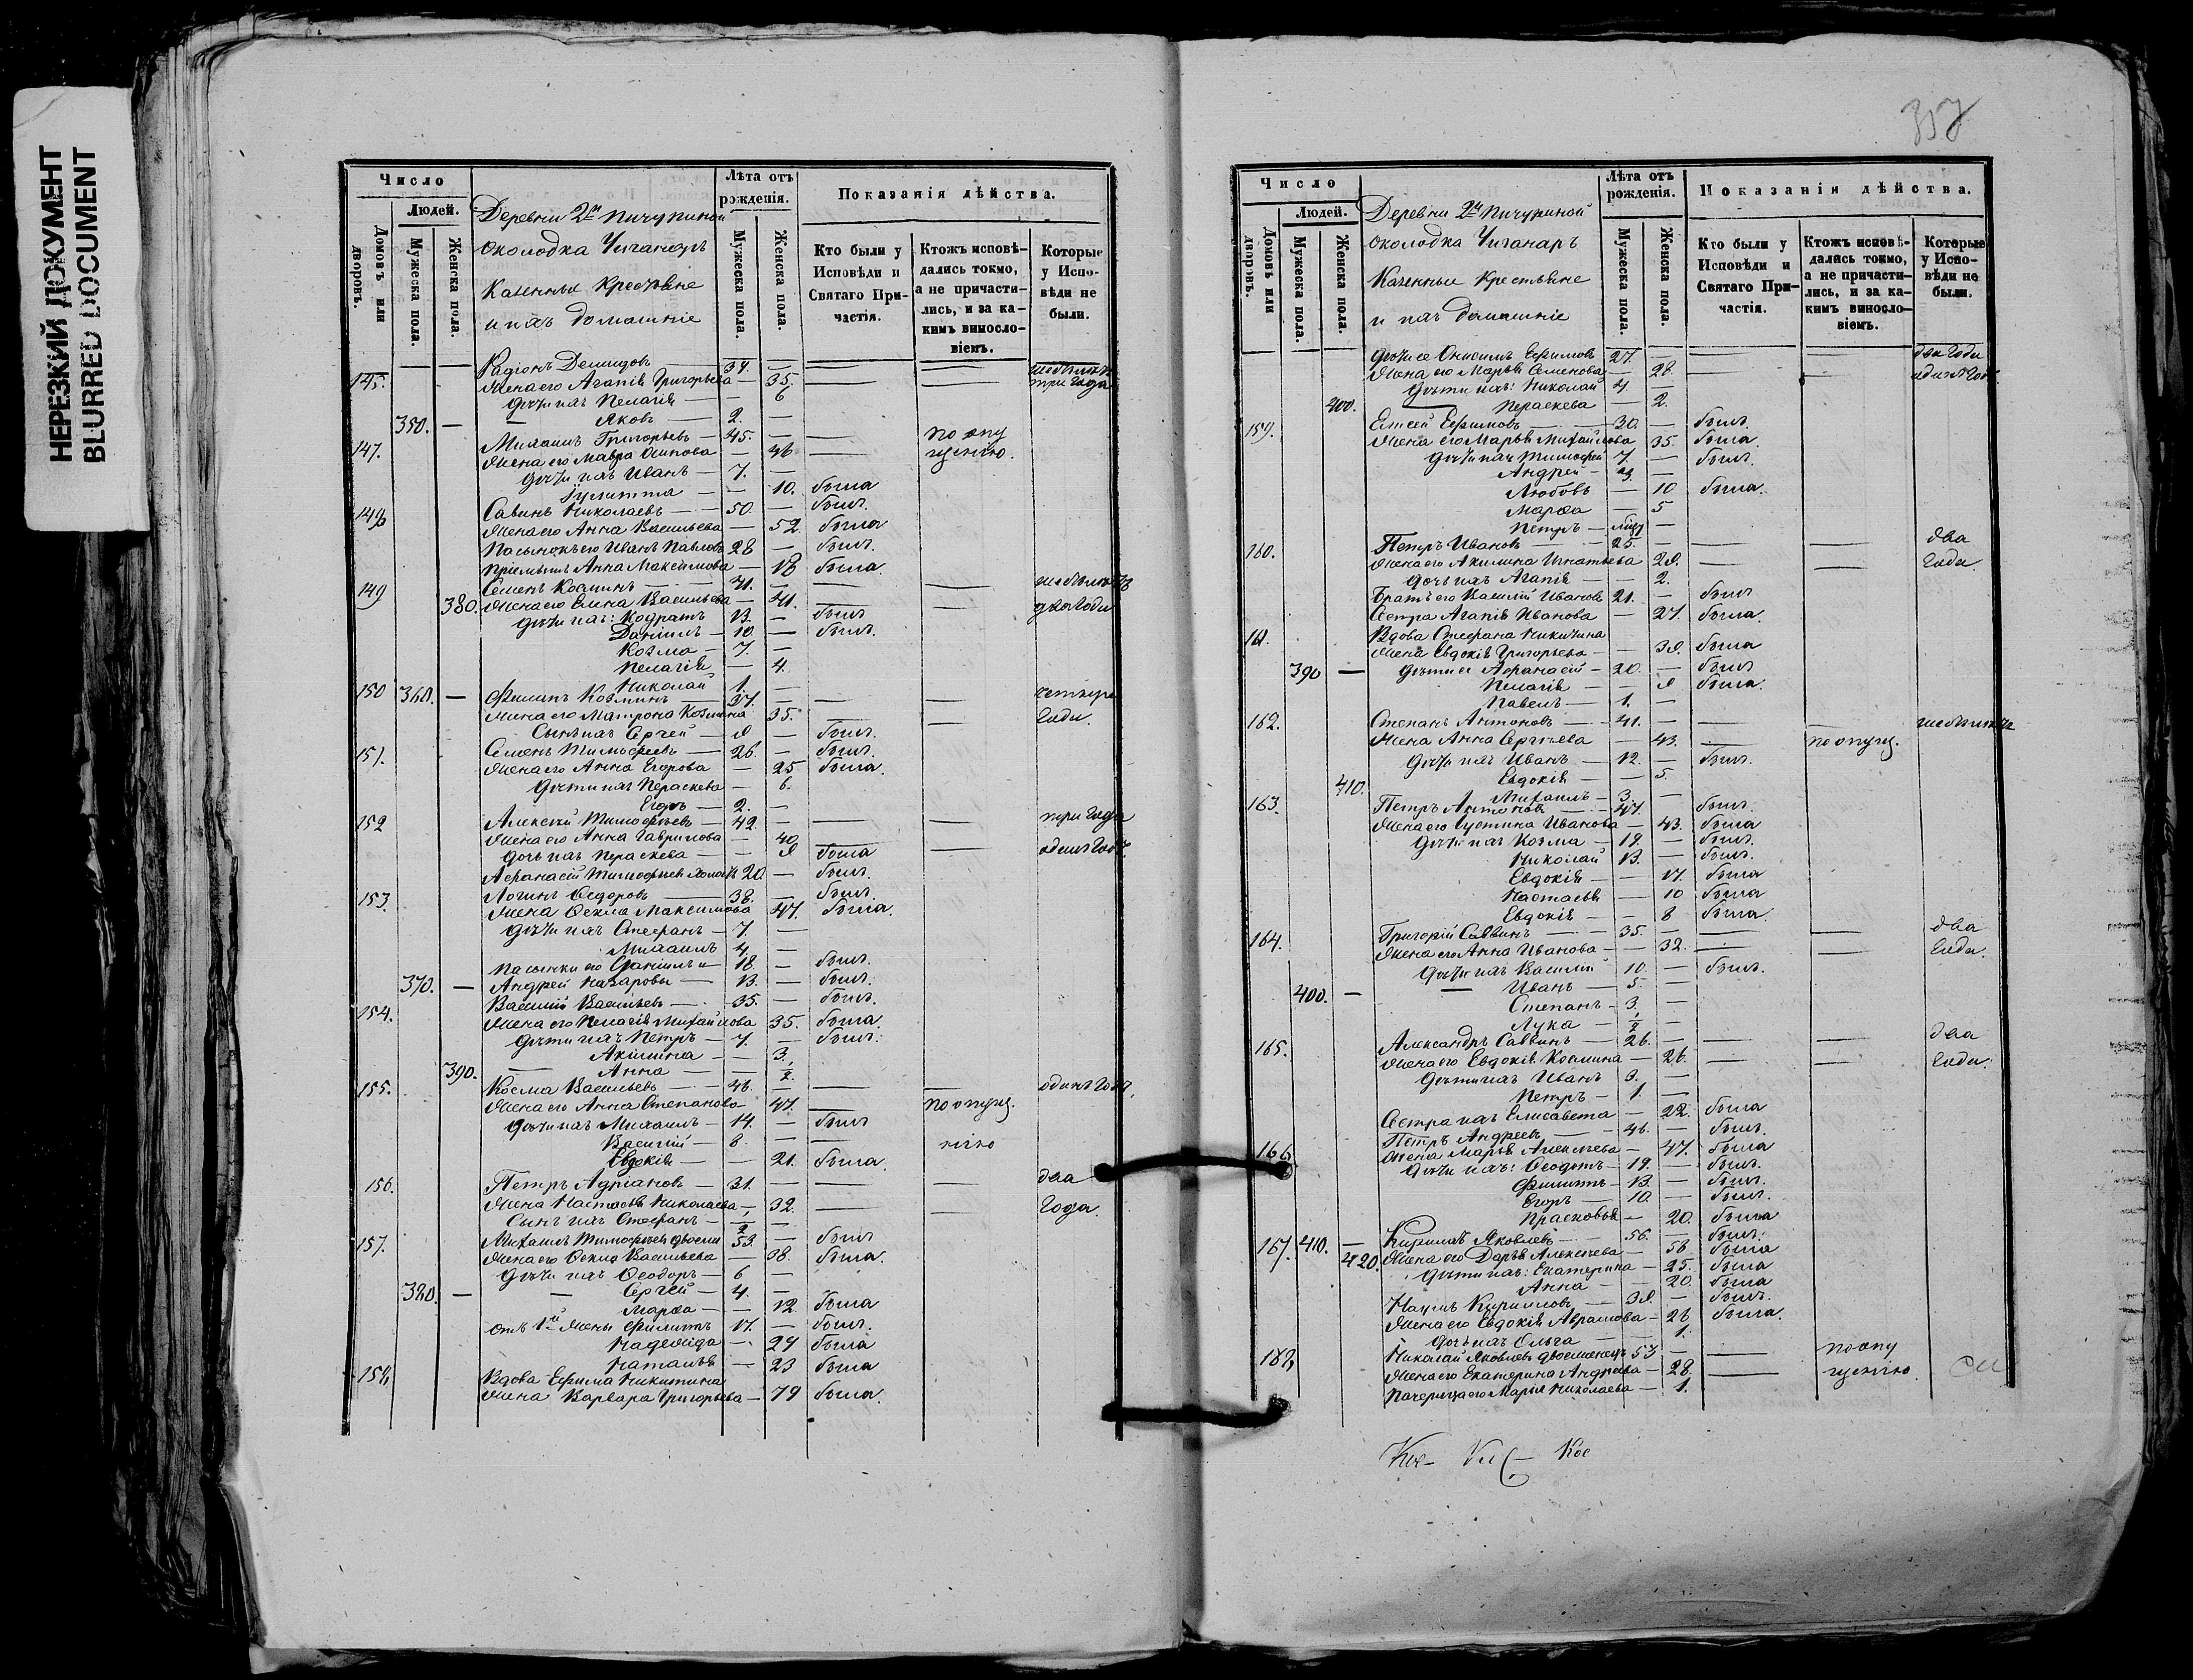 НЕРЕЗКИЙ ДОКУМЕНТ
BLURRED DOCUMENT
Число
Людей.
Домовъ или дворовъ.
Мужеска пола.
Женска пола.
Деревни 2й Пичуриной
околодка Чиганаръ
Казенные Крестьяне
и ихъ домашніе
Лѣта отъ рожденія.
Мужеска пола.
Женска пола.
Показанія дѣйства.
Кто были у Исповѣди и Святаго Причастія.
Ктожъ исповѣдались токмо, а не причастились, и за какимъ винословіемъ.
Которые у Исповѣди не были.
145. Радіонъ Демидовъ — 34. —
Жена его Агапія Григорьева — 35. три года
дѣти ихъ Пелагія — 6
350. — Яковъ — 2. —
147. Михаилъ Григорьевъ — 45. — по опу
Жена его Мавра Осипова — 46 — щенію.
дѣти ихъ Иванъ — 7. —
Іулитта — — 10. была
148 Савинъ Николаевъ — 50. — былъ.
Жена его Анна Васильева — 52. была
Пасынокъ его Иванъ Павловъ 28 — былъ.
Пріемышъ Анна Максимова — 18 была.
149 Семенъ Козминъ — 41. —
380. Жена его Елена Васильева — 41. — два годы
дѣти ихъ: Кодратъ 13. — былъ
Даніилъ — 10. — былъ.
Козма — 7. —
Пелагія — 4.
Николай 1. —
150 360. — Филипъ Козминъ — 37. — четыре
Жена его Матрона Козмина 35. — годы.
Сынъ ихъ Сергей — 9 — былъ.
151. Семенъ Тимофеевъ — 26. — былъ.
Жена его Анна Егорова — 25 была.
дѣти ихъ Пераскева — 6.
Егоръ — 2. —
152 Алексѣй Тимофѣевъ — 42. — три года
Жена его Анна Гаврилова — 40
дочь ихъ Пераскева — 9 была одинъ годъ.
Афанасій Тимофѣевъ 20 — былъ.
153. Логинъ Ѳедоровъ — 38. — былъ.
Жена Ѳекла Максимова 47. была.
дѣти ихъ Стефанъ — 7. —
Михаилъ 4. —
Пасынки его Даніилъ и — 18. — былъ.
370. — Андрей Назаровы — 13. — былъ.
154. Василій Васильевъ — 35. — былъ.
Жена его Пелагія Михайлова 35. была.
дѣти ихъ Петръ — 7. — былъ.
Акилина — — 3.
390. — Анна — — 1/2.
155. Козма Васильевъ — 46. — одинъ годъ,
Жена его Анна Степанова — 47. — по опущ.
дѣти ихъ Михаилъ — 14. — былъ
Василій — 8. — нію
Евдокія — — 21. была.
156. Петръ Адріановъ — 31. — два
Жена Настасья Николаева — 32. — года.
Сынъ ихъ Стефанъ — 1/2 —
157. Михаилъ Тимофѣевъ 53. — былъ
Жена его Ѳекла Васильева — 38. была.
дѣти ихъ Ѳеодоръ — 6 —
380. — Сергей — 4. —
Марѳа — — 12. была
отъ 1й жены Филиппъ 17. — былъ.
Надежда — 24 была
Наталья — 23 была
158 Вдова Ефима Никитина
жена Варвара Григорьева — 79 была.
357
Число
Людей.
Домовъ или дворовъ.
Мужеска пола.
Женска пола.
Деревни 2й Пичуриной
околодка Чиганаръ
Казенные Крестьяне
и ихъ домашніе
Лѣта отъ рожденія.
Мужеска пола.
Женска пола.
Показанія дѣйства.
Кто были у Исповѣди и Святаго Причастія.
Ктожъ исповѣдались токмо, а не причастились, и за какимъ винословіемъ.
Которые у Исповѣди не были.
дѣти ея Онисимъ Ефимовъ 27. — два годы
Жена его Марья Семенова — 28. — одинъ годъ
дѣти ихъ: Николай 4. —
400. — Пераскева — 2.
159. Елисей Ефимовъ — 30. — былъ.
Жена его Марья Михайлова 35. была.
дѣти ихъ Тимофей 7. — былъ.
Андрей — 3. —
Любовь — 10 была.
Марѳа — 5
Петръ — —
160. Петръ Ивановъ — 25. — два
Жена его Акилина Игнатьева 29. — годы.
дочь ихъ Агапія — 2.
Братъ его Василій Ивановъ 21. — былъ
Сестра Агапія Иванова — 27. была.
161. Вдова Стефана Никитина
жена Евдокія Григорьева — 39. была
390 — дѣти ея Афанасій — 20. — былъ
Пелагія — — 9 была.
Павелъ — 1. —
162. Степанъ Антоновъ — 41. —
Жена Анна Сергѣева — 43. — по опущ.
дѣти ихъ Иванъ — 12. — былъ.
Евдокія — — 5.
410. Михаилъ — 3. —
163. Петръ Антоновъ — 47. — былъ.
Жена его Устина Иванова — 43. была
дѣти ихъ Козма — 19. — былъ.
Николай 13. — былъ.
Евдокія — — 17. была
Настасья — 10 была
Евдокія — — 8 была.
164. Григорій Саввинъ — 35. — два
Жена его Анна Иванова — 32. — годы.
дѣти ихъ Василій 10. — былъ.
400. — Иванъ — 5. —
Степанъ — 3. —
Лука — 1/2 —
165. Александръ Саввинъ — 26. — два
Жена его Евдокія Козмина — 26. — годы.
дѣти ихъ Иванъ 3. —
Петръ — 1. —
Сестра ихъ Елисавета — 22. была
166 Петръ Андреевъ — 46. — былъ.
Жена Марья Алексѣева — 47. была
дѣти ихъ: Ѳеодотъ — 19. — былъ.
Филиппъ — 13. — былъ.
Егоръ — 10. — былъ.
Прасковья — 20. была
167. 410. — Кирилъ Яковлевъ — 56. — былъ.
420. Жена его Дарья Алексѣева — 58 была
дѣти ихъ: Екатерина — 25. была
Анна — — 20. была
Наумъ Кирилловъ — 39. — былъ.
Жена его Евдокія Абрамова — 26 была.
дочь ихъ Ольга — 1.
168 Николай Яковлевъ 53 — по опу
Жена его Екатерина Андреева — 28. — щенію.
Падчерица его Марія Николаева — 1.